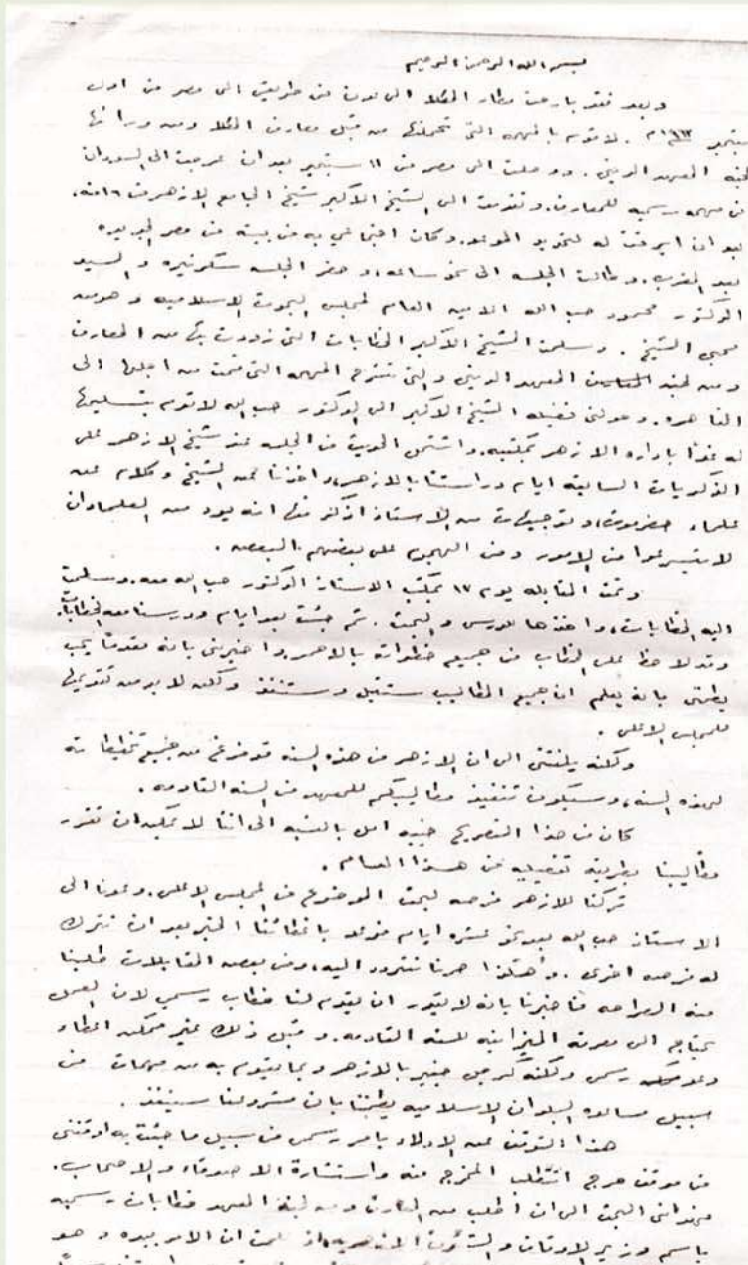 بسم الله الرحمن الرحيم
وبعد فقد بارحت مطار المكلا الى عدن في طريقي الى مصر في اول
سبتمبر ١٩٦٣م. لاقوم بالمهمه التي تحملتها من قبل معارف المكلا ومن ورائها
لجنة المعهد الديني. ووصلت الى مصر في ١١ سبتمبر بعد ان عرجت الى السودان
في مهمه رسميه للمعارف. وتقدمت الى الشيخ الاكبر شيخ الجامع الازهر في ١٦ منه،
بعد ان ابرقت له لتحديد الموعد. وكان اجتماعي به في بيته في مصر الجديده
بعد المغرب. وطالت الجلسه الى نحو ساعه، وحضر الجلسه سكرتيره والسيد
الدكتور محمود حب الله الامين العام لمجلس البحوث الاسلاميه وهو من
محبي الشيخ. وسلمت الشيخ الاكبر الخطابات التي زودت بها من المعارف
ومن لجنة المعهد الديني والتي تشرح المهمه التي قمت من اجلها الى
القاهره. وحولني فضيلة الشيخ الاكبر الى الدكتور حب الله لاقوم بتسليمها
له غدا باداره الازهر بمكتبه. واشتمل الحديث في الجلسه عند شيخ الازهر على
الذكريات السابقه ايام دراستنا بالازهر، واخذنا مع الشيخ وكلام عن
علماء حضرموت، وتوجيهات من الاستاذ اذكر منها انه يود من العلماء ان
لا يتسرعوا في الامور وفي الهجوم على بعضهم البعض.
وتمت المقابله يوم ١٧ بمكتب الاستاذ الدكتور حب الله معه. وسلمت
اليه الخطابات، واخذها للدرس والبحث. ثم جئت بعد ايام ودرسنا معه الخطابات
وقد لاحظ على الكتاب في جميع خطواته بالاحمر. واخبرني بانه مقدما يجب
يطمئن بان يعلم ان جميع المطاليب ستقبل وستنفذ ولكن لا بد من تقديمها
للمجلس الاعلى.
ولكنه يلفتني الى ان الازهر في هذه السنه قد فرغ من جميع تخطيطاته
لهذه السنه، وسيكون تنفيذ مطاليبكم للمعهد في السنه القادمه.
كان في هذا التصريح خيبه امل بالنسبه الى اننا لا يمكن ان نقرر
مطاليبنا بطريقه تفصيليه في هذا العام.
تركنا للازهر فرصه لبحث الموضوع في المجلس الاعلى. وعدنا الى
الاستاذ حب الله بعد نحو عشره ايام فوعد باعطائنا الخبر بعد ان نترك
له فرصه اخرى. وهكذا صرنا نتردد اليه، وفي بعض المقابلات طلبنا
منه الصراحه فاخبرنا بانه لا يقدر ان يقدم لنا خطاب رسمي لان العمل
يحتاج الى معرفة الميزانيه للسنه القادمه. وقبل ذلك غير ممكن اعطاء
وعد رسمي ولكنه كرجل خبير بالازهر وبما يقوم به من مهمات في
سبيل مساعده البلدان الاسلاميه يطمئننا بان مشروعنا سينفذ.
هذا التوقف عن الادلاء بامر رسمي في سبيل ما جئت به اوقفني
في موقف حرج اتطلب المخرج منه واستشارة الاصدقاء والاصحاب.
فهداني البحث الى ان اطلب من المعارف ومن لجنة المعهد خطابات رسميه
باسم وزير الاوقاف والشئون الازهريه، اذ علمت ان الامر بيده وهو